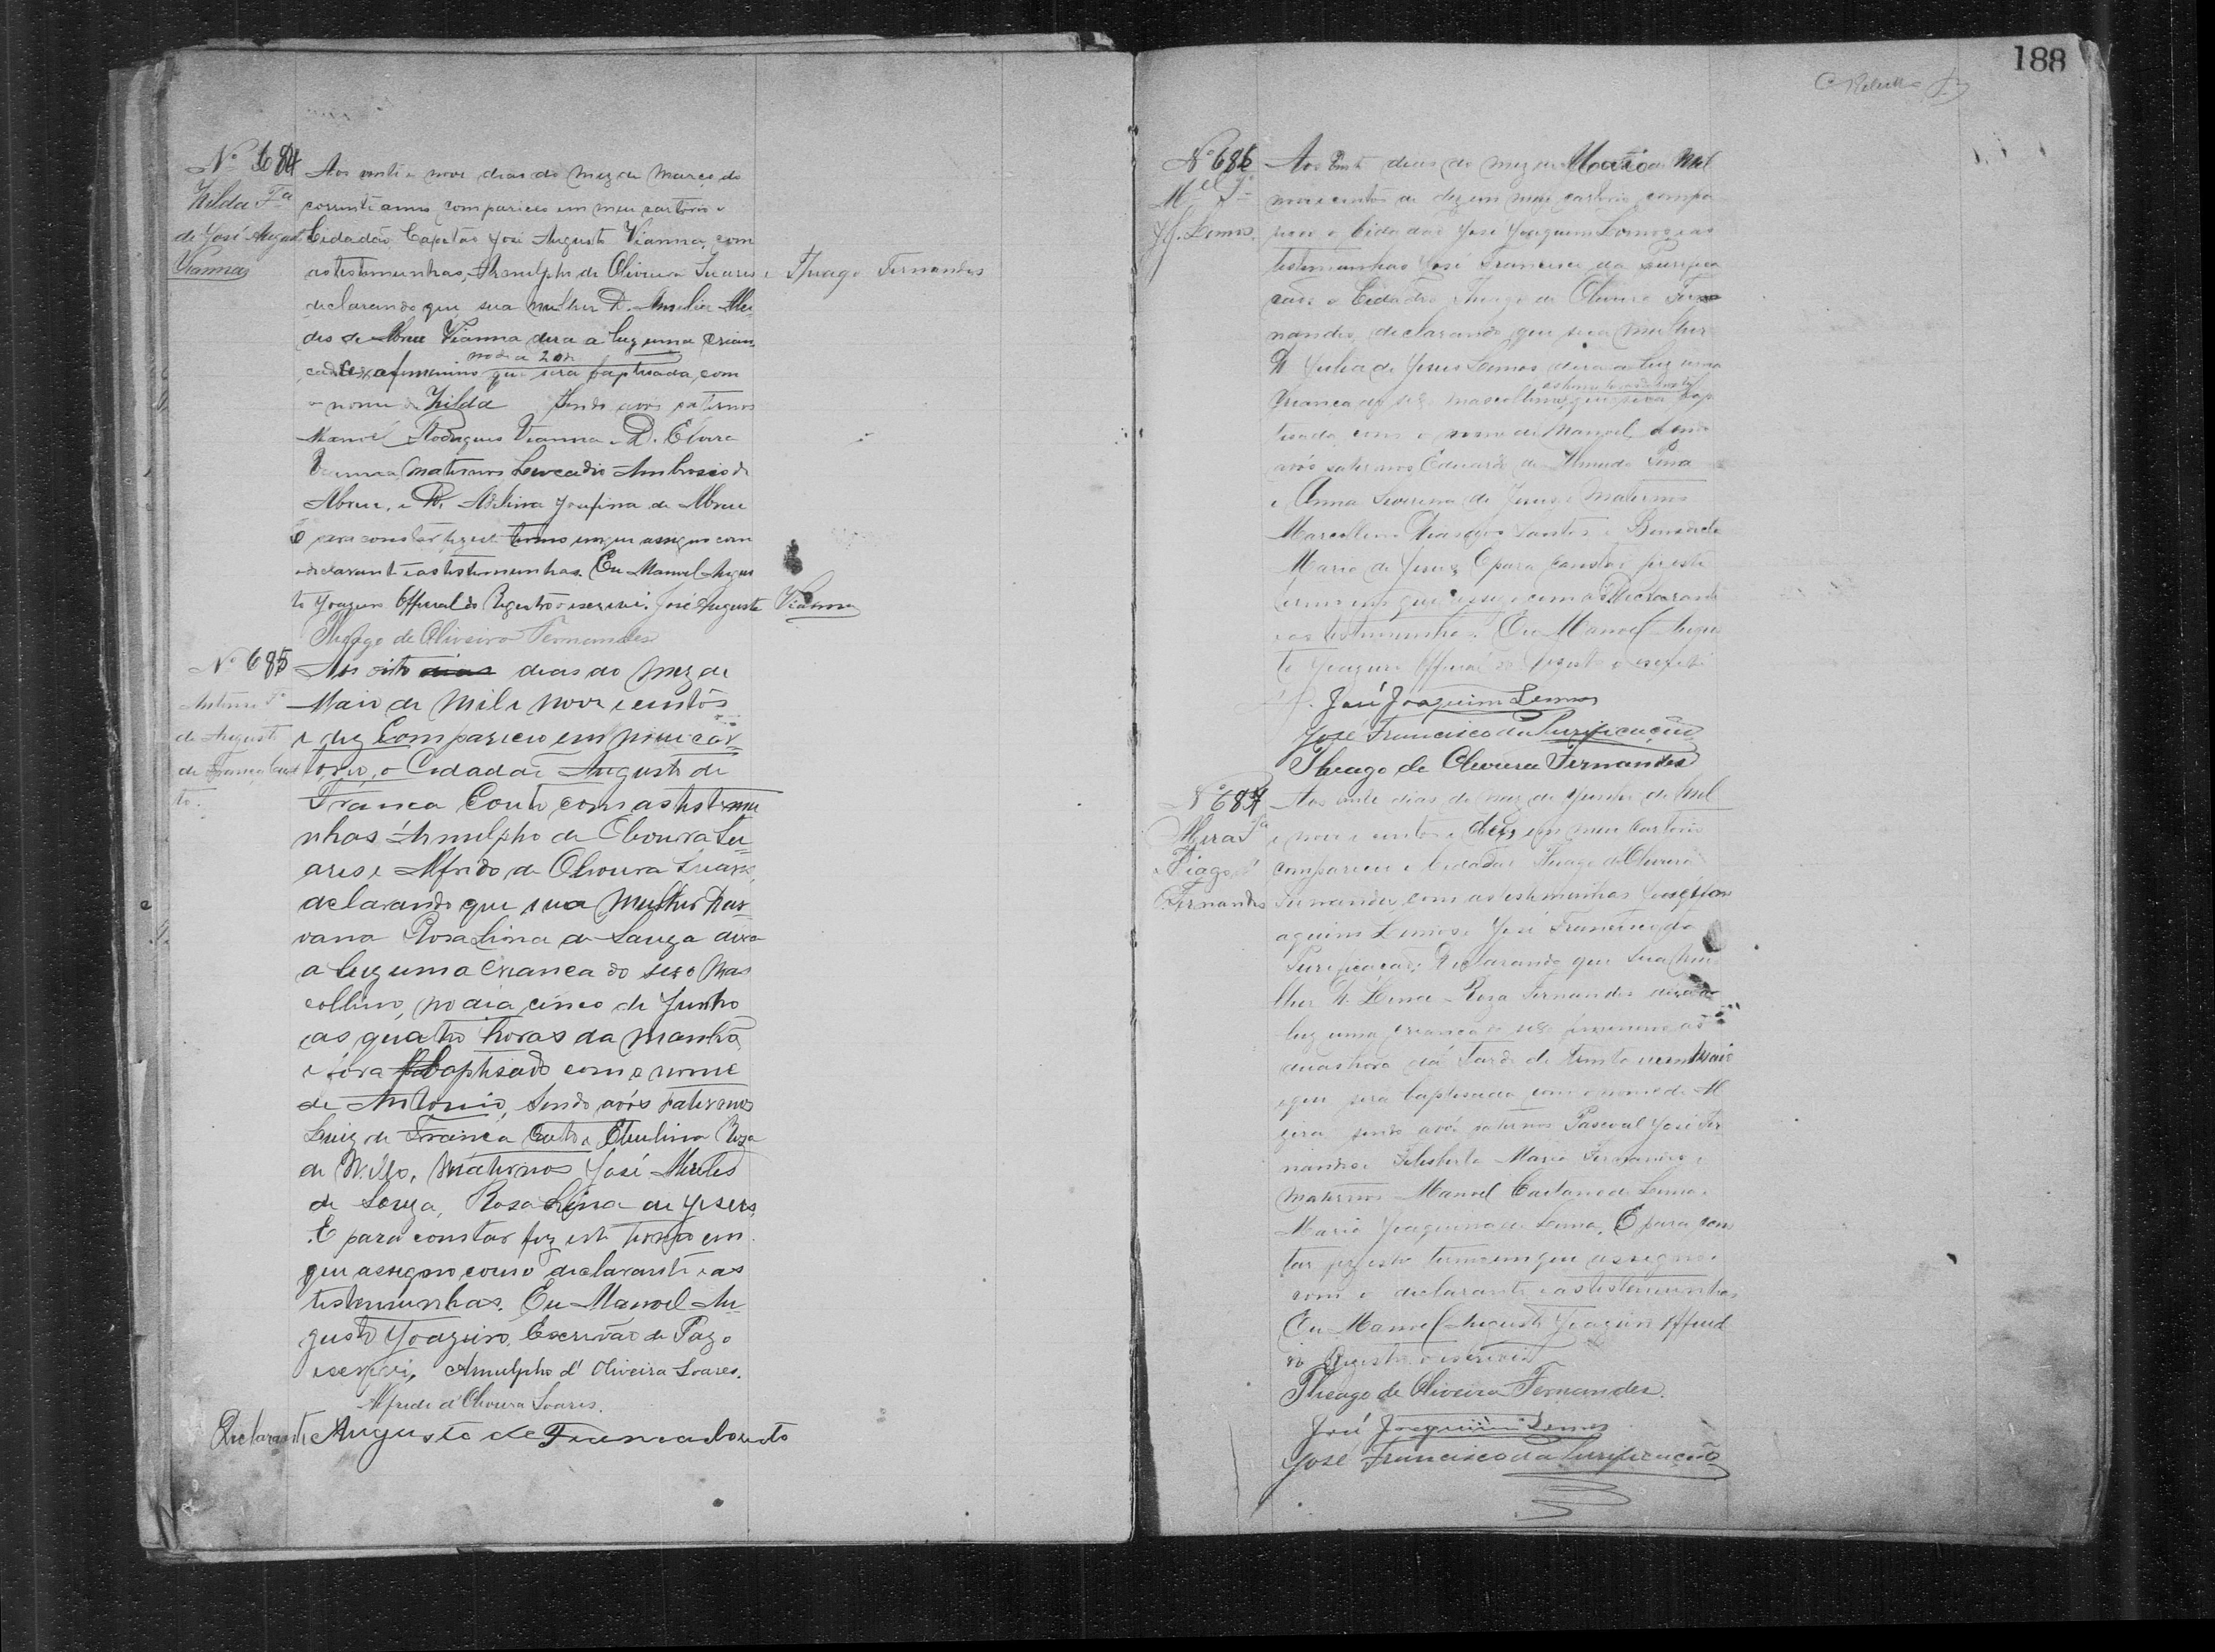 188
Nº 684
Zilda Fª
de José August
Vianna
Aos vinti e nove dias do mez de Março do
corrente anno compareceo em meu cartorio o
Cidadão Capitão José Augusto Vianna, com
as testemunhas, Arnulpho de Oliveira Soares e Thiago Fernandes
declarando que sua mulher D. Amelia
des de Abreu Vianna dera a luz uma crian
no dia 20
ça do sexo feminino que será baptisada, com
o nome de Zilda sendo avós paternos
Manoel Rodrigues Vianna e D. Elvira
Vianna, maternos Leocadio Ambrosio de
Abreu, e D. Adelina Josefina de Abreu
E para constar fiz este termo em que assigno com
o declarante e as testemunhas. Eu Manoel Augus
to Joazeiro Official do Registro o escrevi. José Augusto Vianna
Thiago de Oliveira Fernandes
Nº 685
Antonio Fº
de Augusto
de França Cou
to.
Aos oito dias dias do mez de
Maio de mil e nove centos
e dez Compareceo em meu car
torio, o Cidadão Augusto de
França Couto com as testemu
nhas Arnulpho de Oliveira So
ares e Alfredo de Oliveira Soares,
declarando que sua mulher
Rosa Lina de Souza dera
a luz uma crianca do sexo mas
collino, no dia cinco de Junho
as quatro horas da manhã
e sera baptisado com o nome
de Antonio, sendo avós paternos
Luiz de França Couto e Etulina Roza
de Mello, Maternos José Mertes
de Souza, Rosa Lina de Jesus,
E para constar fiz este termo em
que assigno como declarante e as
testemunhas. Eu Manoel Au
gusto Joazeiro, Escrivão de Paz o
escrevi, Arnulpho d'Oliveira Soares.
Alfredo d'Oliveira Soares.
Declarante Augusto de Franca Couto
Nº 686
Mel Fº
J. J. Lemos.
Aos vinte dias do mez de Maio de Mil
novecentos e dez em meu cartorio, compa
receo o Cidadão José Joaquim Lemos e as
testemunhas José Francisco da Purifica
cão e Cidadão Thiago de Oliveira Fer
nandes, declarando que sua mulher
D. Julia de Jesus Lemos dera a luz uma
crianca do sexo mascollino, que será bap
tisada com o nome de Manoel, sendo
avós paternos Eduardo de Almeida Lima
e Anna Severina de Jesus e Maternos
Marcollino Dias dos Santos e Benedicta
Maria de Jesus E para constar fiz este
termo em que assigno com o Declarante
e as testemunhas. Eu Manoel Augus
to Joazeiro Official do Registo o escrevi
José Joaquim Lemos
José Francisco da Purificação
Thiago de Oliveira Fernandes
Nº 687
Fª
Tiago
Fernandes
Aos vinte dias do mez de Junho de Mil
e nove centos e dez em meu Cartorio
compareceu o Cidadão Thiago de Oliveira
Fernandes com as testemunhas José Jo
aquim Lemos e José Francisco da
Purificação, Declarando que sua mu
lher D. Lina Roza Fernandes dera a
luz uma crianca do sexo femenino as
duas hora da tarde de trinta e um Maio
e que será baptisada com o nome de Al
zira, sendo avós paternos Pascoal José Fer
nandes e Felisberta Maria Fernandes e
maternos Manoel Caetano de Lima e
Maria Joaquina de Lima, E para cons
tar fiz este termo em que assigno
com o declarante e as testemunhas
Eu Manoel Augusto Joazeiro Official
do Registro o escrevi
Thiago de Oliveira Fernandes.
José Joaquim Lemos
José Francisco da Purificação